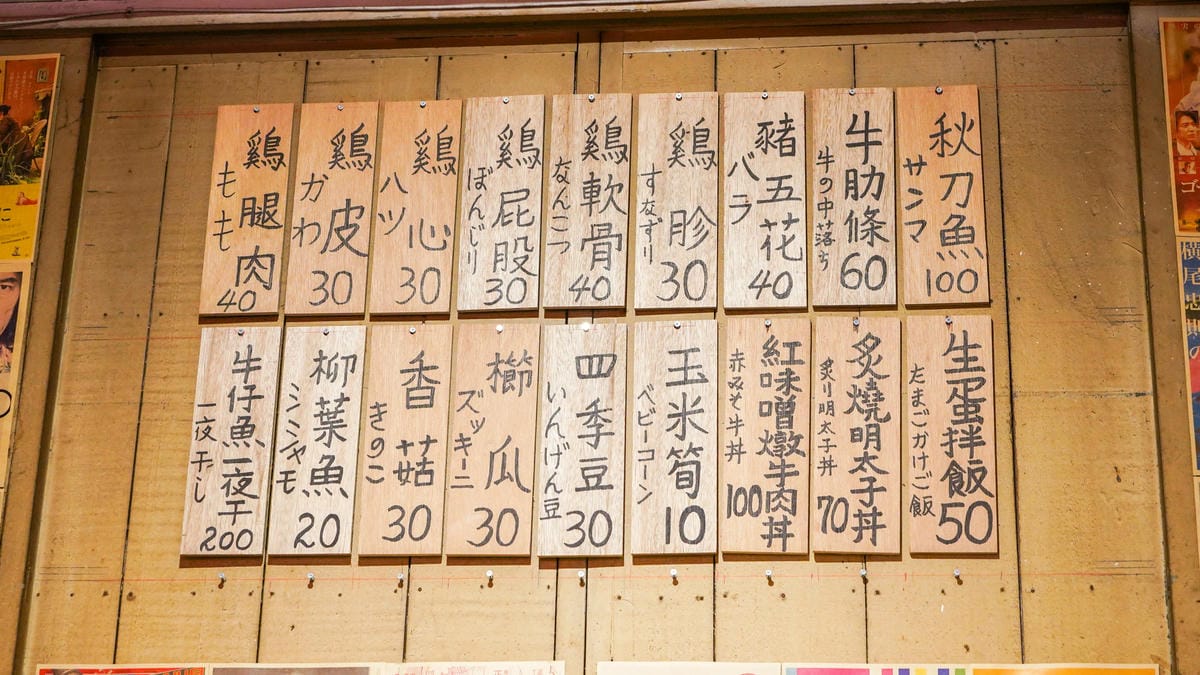 秋刀魚
サンマ
100
牛肋條
牛の中落ち
60
豬五花
バラ
40
鷄胗
すなずり
30
鷄軟骨
なんこつ
40
鷄屁股
ぼんじり
30
鷄心
ハツ
30
鷄皮
かわ
30
鷄腿肉
もも
40
生蛋拌飯
たまごかけご飯
50
炙燒明太子丼
炙り明太子丼
70
紅味噌燉牛肉丼
赤みそ牛丼
100
玉米筍
ベビーコーン
10
四季豆
いんげん豆
30
櫛瓜
ズッキーニ
30
香菇
きのこ
30
柳葉魚
シシャモ
20
牛仔魚一夜干
一夜干し
200